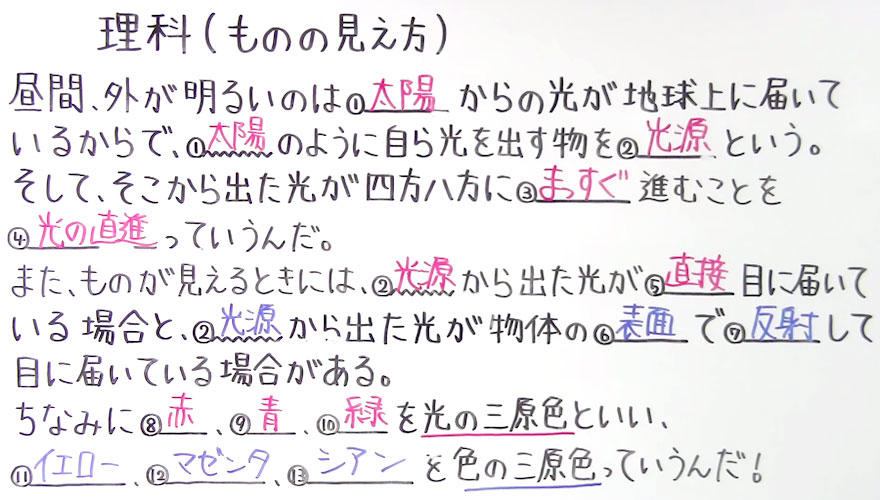 理科(ものの見え方)
昼間、外が明るいのは①太陽からの光が地球上に届いて
いるからで、①太陽のように自ら光を出す物を②光源という。
そして、そこから出た光が四方八方に③まっすぐ進むことを
④光の直進っていうんだ。
また、ものが見えるときには、②光源から出た光が⑤直接目に届いて
いる場合と、②光源から出た光が物体の⑥表面で⑦反射して
目に届いている場合がある。
ちなみに⑧赤、⑨青、⑩緑を光の三原色といい、
⑪イエロー、⑫マゼンタ、⑬シアンを色の三原色っていうんだ!